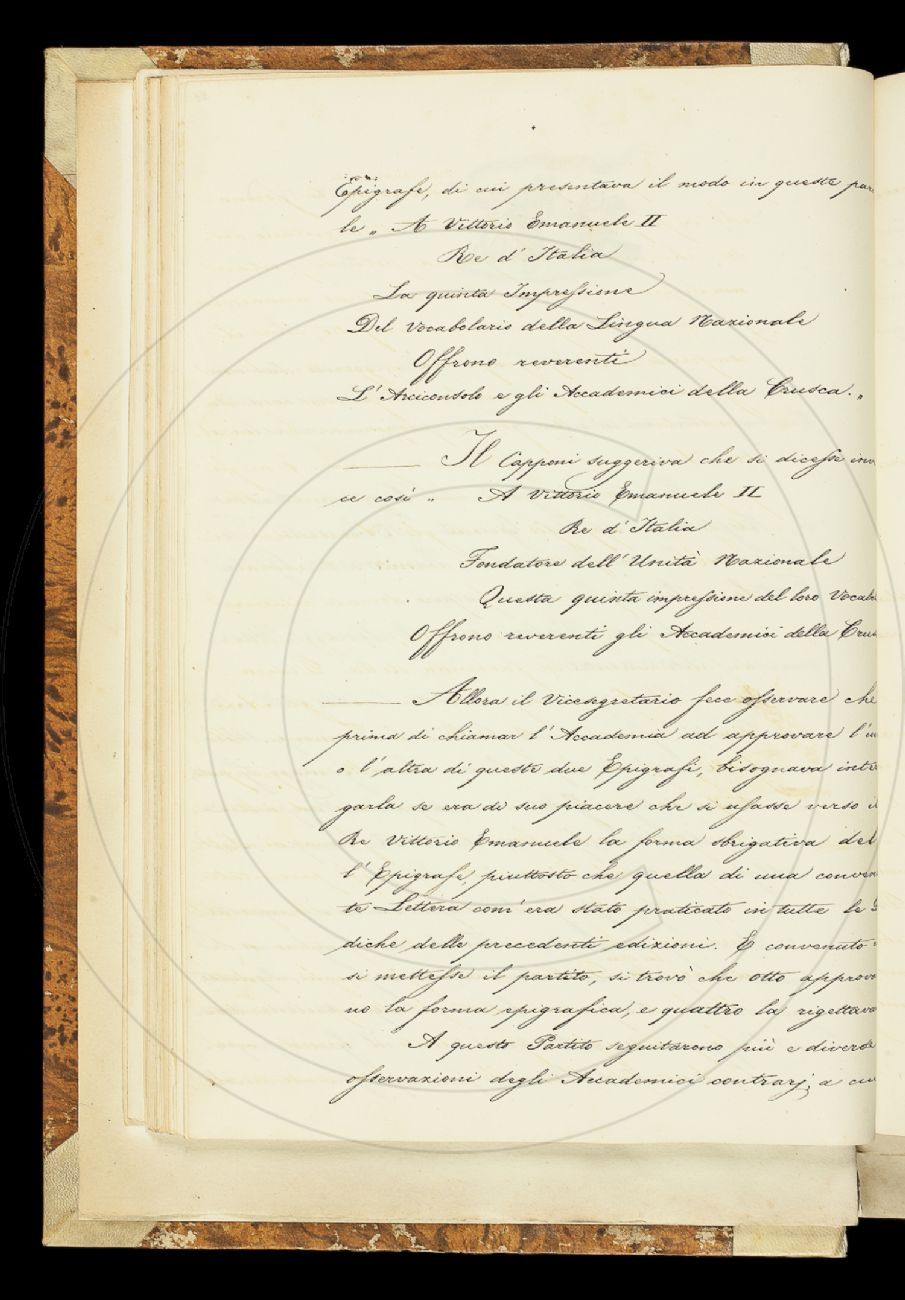 Epigrafe, di cui presentava il modo in queste par
le „ A Vittorio Emanuele II
Re d' Italia
La quinta Impressione
Del Vocabolario della Lingua Nazionale
Offrono reverenti
L' Arciconsolo e gli Accademici della Crusca. „
Il Capponi suggeriva che si dicesse inv
ce così „ A Vittorio Emanuele II
Re d' Italia
Fondatore dell' Unità Nazionale
Questa quinta impressione del loro Vocab
Offrono reverenti gli Accademici della Crus
Allora il Vicesegretario fece osservare che
prima di chiamar l' Accademia ad approvare l' u
o l' altra di queste due Epigrafi, bisognava inte
garla se era di suo piacere che si usasse verso i
Re Vittorio Emanuele la forma sbrigativa del
l' Epigrafe, piuttosto che quella di una conven
te Lettera com' era stato praticato in tutte le
diche delle precedenti edizioni. E convenuto
si mettesse il partito, si trovò che otto approva
no la forma epigrafica, e quattro la rigettava
A questo Partito seguitarono più e diverse
osservazioni degli Accademici contrarj; a cu